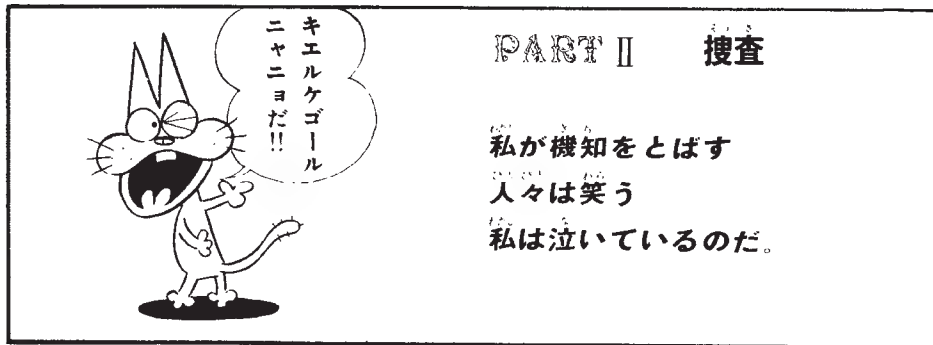 キエルケゴール
ニャニョだ!!
PART II 捜査
私が機知をとばす
人々は笑う
私は泣いているのだ。